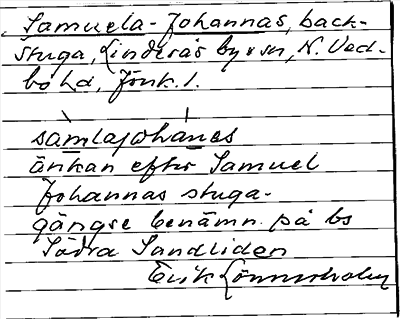 Samuela-Johannas, back-
stuga, Linderås by o sn, N. Ved-
bo hd, Jönk. l.
samlajohanas
änkan efter Samuel
Johannas stuga-
gängse benämn. på bs
Södra Sandliden
Erik Lönnerholm